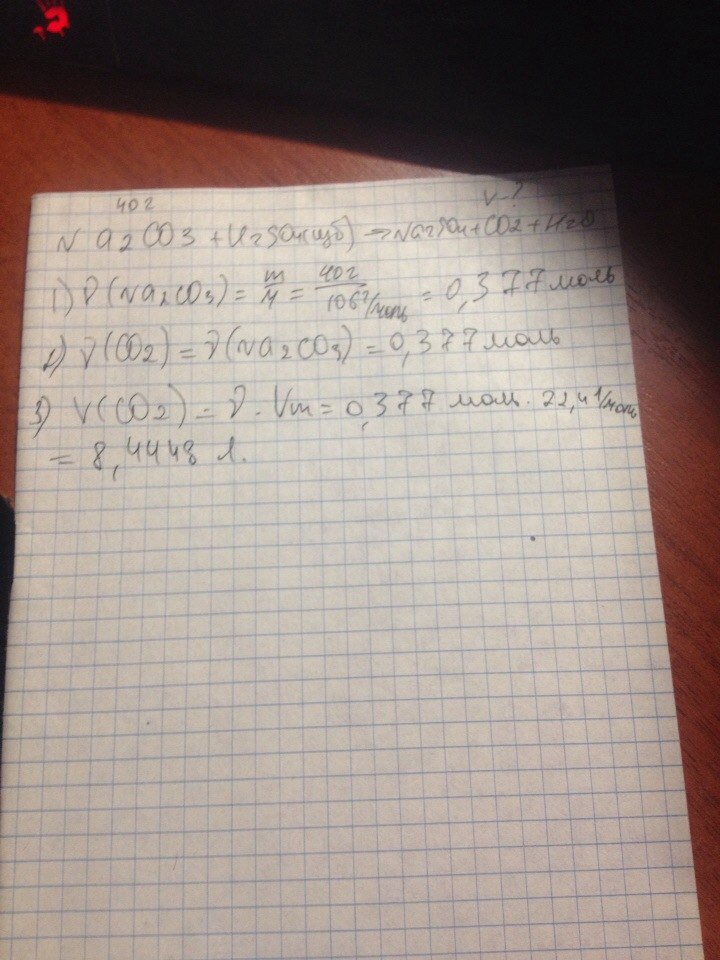 40 г V-?
Na2CO3 + H2SO4(изб) → Na2SO4 + CO2 + H2O
1) ν(Na2CO3) = m/M = 40г/106г/моль = 0,377 моль
2) ν(CO2) = ν(Na2CO3) = 0,377 моль
3) V(CO2) = ν · Vm = 0,377 моль · 22,4 л/моль
= 8,4448 л.